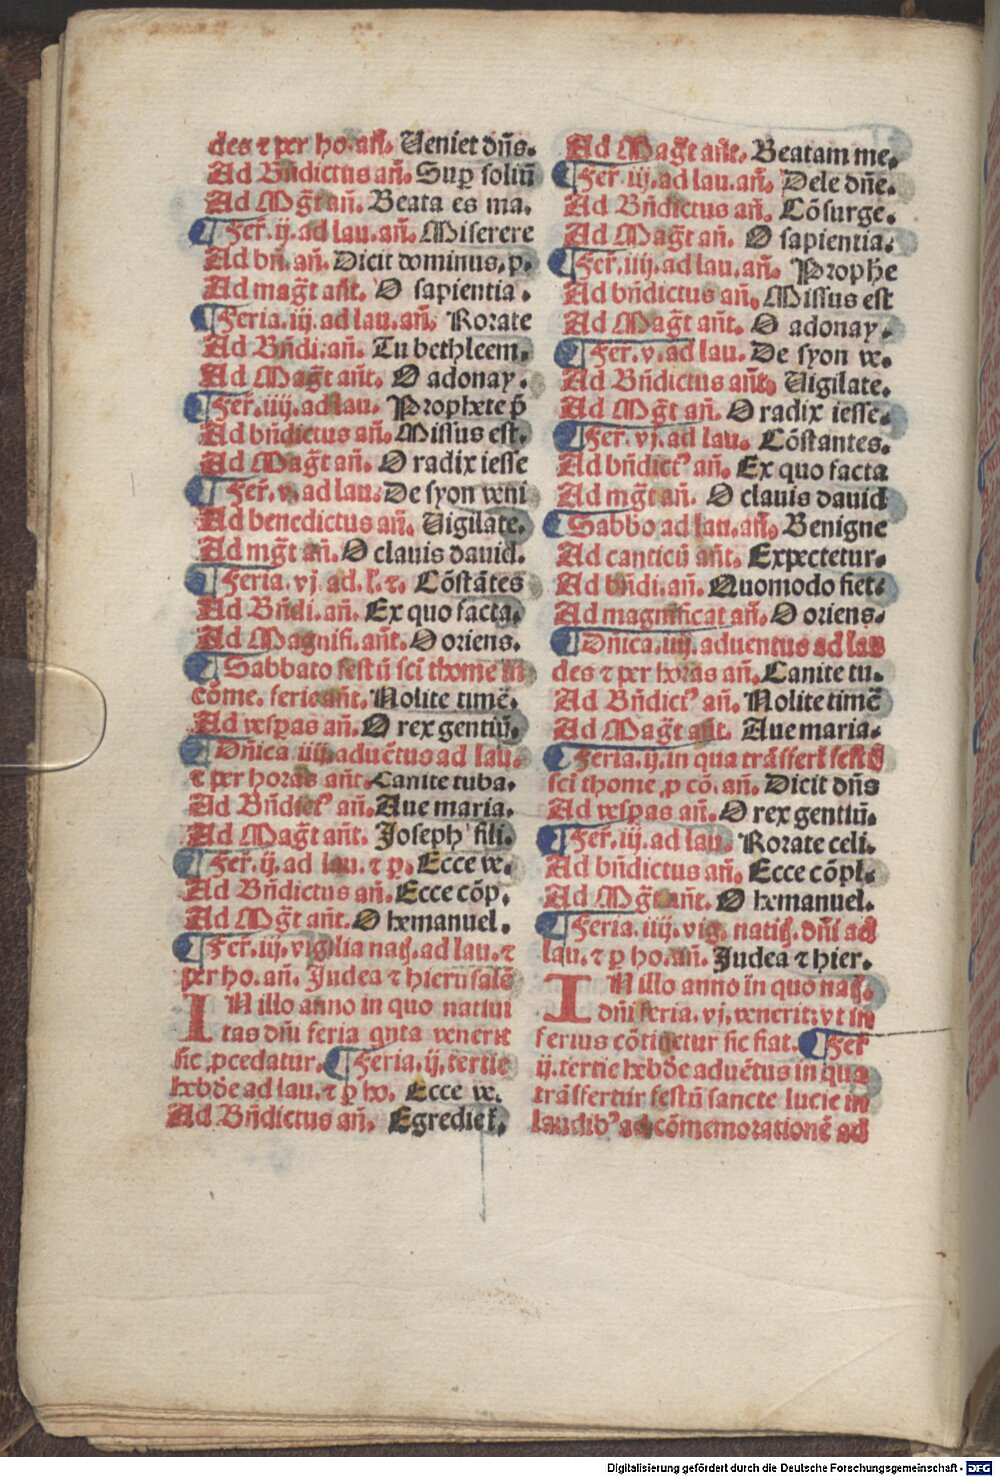 des ⁊ per ho. an̄. Ueniet dn̄s.
Ad Bn̄dictus an̄. Sup̱ soliū
Ad Mḡt an̄. Beata es ma.
¶ Fer̄. ij. ad lau. an̄. Miserere
Ad bn̄. an̄. Dicit dominus, p.
Ad maḡt an̄t. O sapientia.
¶ Feria. iij. ad lau. an̄. Rorate
Ad Bn̄di. an̄. Tu bethleem.
Ad Maḡt an̄t. O adonay.
¶ Fer̄. iiij. ad lau. Prophete p̄
Ad bn̄dictus an̄. Missus est.
Ad Maḡt an̄. O radix iesse
¶ Fer̄. v. ad lau. De syon veni
Ad benedictus an̄. Uigilate.
Ad mḡt an̄. O clauis dauid.
¶ Feria. vj. ad. l. ⁊. Cōstātes
Ad Bn̄di. an̄. Ex quo facta.
Ad Magnifi. an̄t. O oriens.
¶ Sabbato festū sci thome in
cōme. ferie an̄t. Nolite timē.
Ad vesp̱as an̄. O rex gentiū.
¶ Dn̄ica iiij. aduētus ad lau.
⁊ per horas an̄t. Canite tuba.
Ad Bn̄dictꝰ an̄. Aue maria.
Ad Maḡt an̄t. Joseph fili.
¶ Fer̄. ij. ad lau. ⁊ p̱. Ecce ve.
Ad Bn̄dictus an̄. Ecce cōp.
Ad Mḡt an̄t. O hemanuel.
¶ Fer̄. iij. vigilia natī. ad lau. ⁊
per ho. an̄. Judea ⁊ hierusalē
IN illo anno in quo natiui
tas dn̄i feria qnta venerit
sic p̱cedatur. ¶ Feria. ij. tertie
hebde ad lau. ⁊ p̱ ho. Ecce ve.
Ad Bn̄dictus an̄. Egredieť.
Ad Maḡt an̄t. Beatam me.
¶ Fer̄. iij. ad lau. an̄. De celo dn̄e.
Ad Bn̄dictus an̄. Cōsurge.
Ad Maḡt an̄. O sapientia.
¶ Fer̄. iiij. ad lau. an̄. Prophe
Ad bn̄dictus an̄. Missus est
Ad Maḡt an̄t. O adonay.
¶ Fer. v. ad lau. De syon ve.
Ad Bn̄dictus an̄t. Uigilate.
Ad Mḡt an̄. O radix iesse.
¶ Fer̄. vj. ad lau. Cōstantes.
Ad bn̄dictꝰ an̄. Ex quo facta
Ad mḡt an̄. O clauis dauid
¶ Sabbo ad lau. an̄. Benigne
Ad canticū an̄t. Expectetur.
Ad bn̄di. an̄. Quomodo fiet.
Ad magnificat an̄. O oriens.
¶ Dn̄ica. iiij. aduentus ad lau
des ⁊ per horas an̄. Canite tu.
Ad Bn̄dictꝰ an̄. Nolite timē
Ad Maḡt an̄t. Aue maria.
¶ Feria. ij. in qua trāsfert festū
sci thome, p cō. an̄. Dicit dn̄s
Ad vesp̱as an̄. O rex gentiū.
¶ Fer̄. iij. ad lau. Rorate celi.
Ad bn̄dictus an̄. Ecce cōpl.
Ad Mḡt an̄t. O hemanuel.
¶ Feria. iiij. vig. natī. dn̄i ad
lau. ⁊ p̱ ho. an̄. Judea ⁊ hier.
IN illo anno in quo natī.
dn̄i feria. vj. venerit; vt in
ferius cōtinetur sic fiat. ¶ Fer̄
ij. tertie hebde aduētus in qua
trāsfertur festū sancte lucie in
laudibꝰ ad cōmemorationē ad
Digitalisierung gefördert durch die Deutsche Forschungsgemeinschaft - DFG